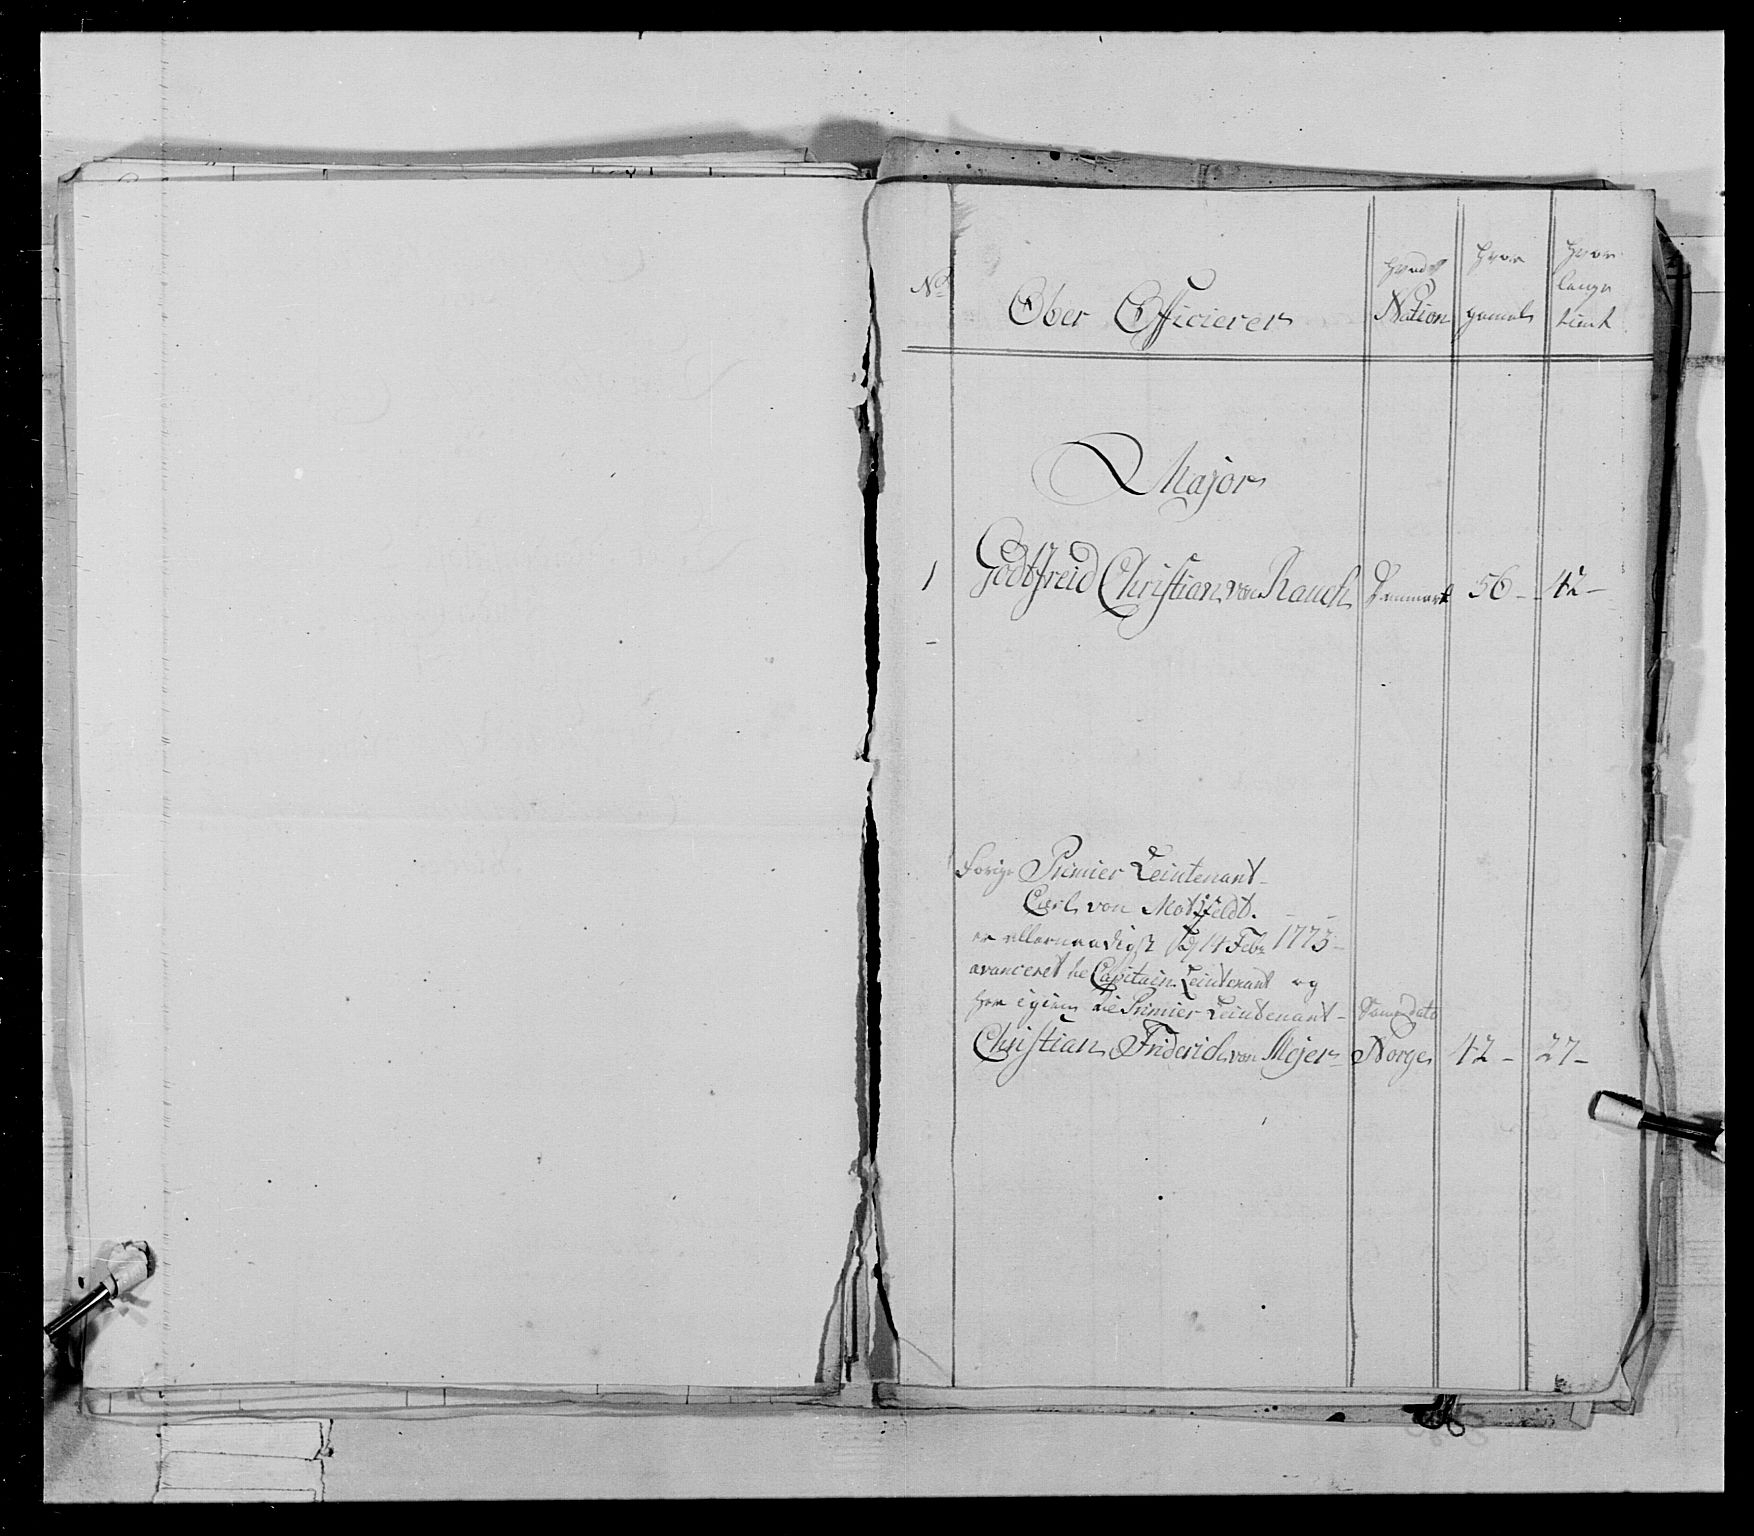 No Ober Officierer hvad Nation hvor gammel hvor lenge tient
Major
1 Godtfreid Christian von Rauch Danmark 56 - 42 -
Forige Primier Leutenant -
Carl von Motzfeldt. - -
er allernaadigst d 14 Febr 1773 -
avanceret til Capitain Leutenant og
her igien til Primier Leutenant - Samedato
Christian Friderich von Mejer - Norge 42 - 27 -